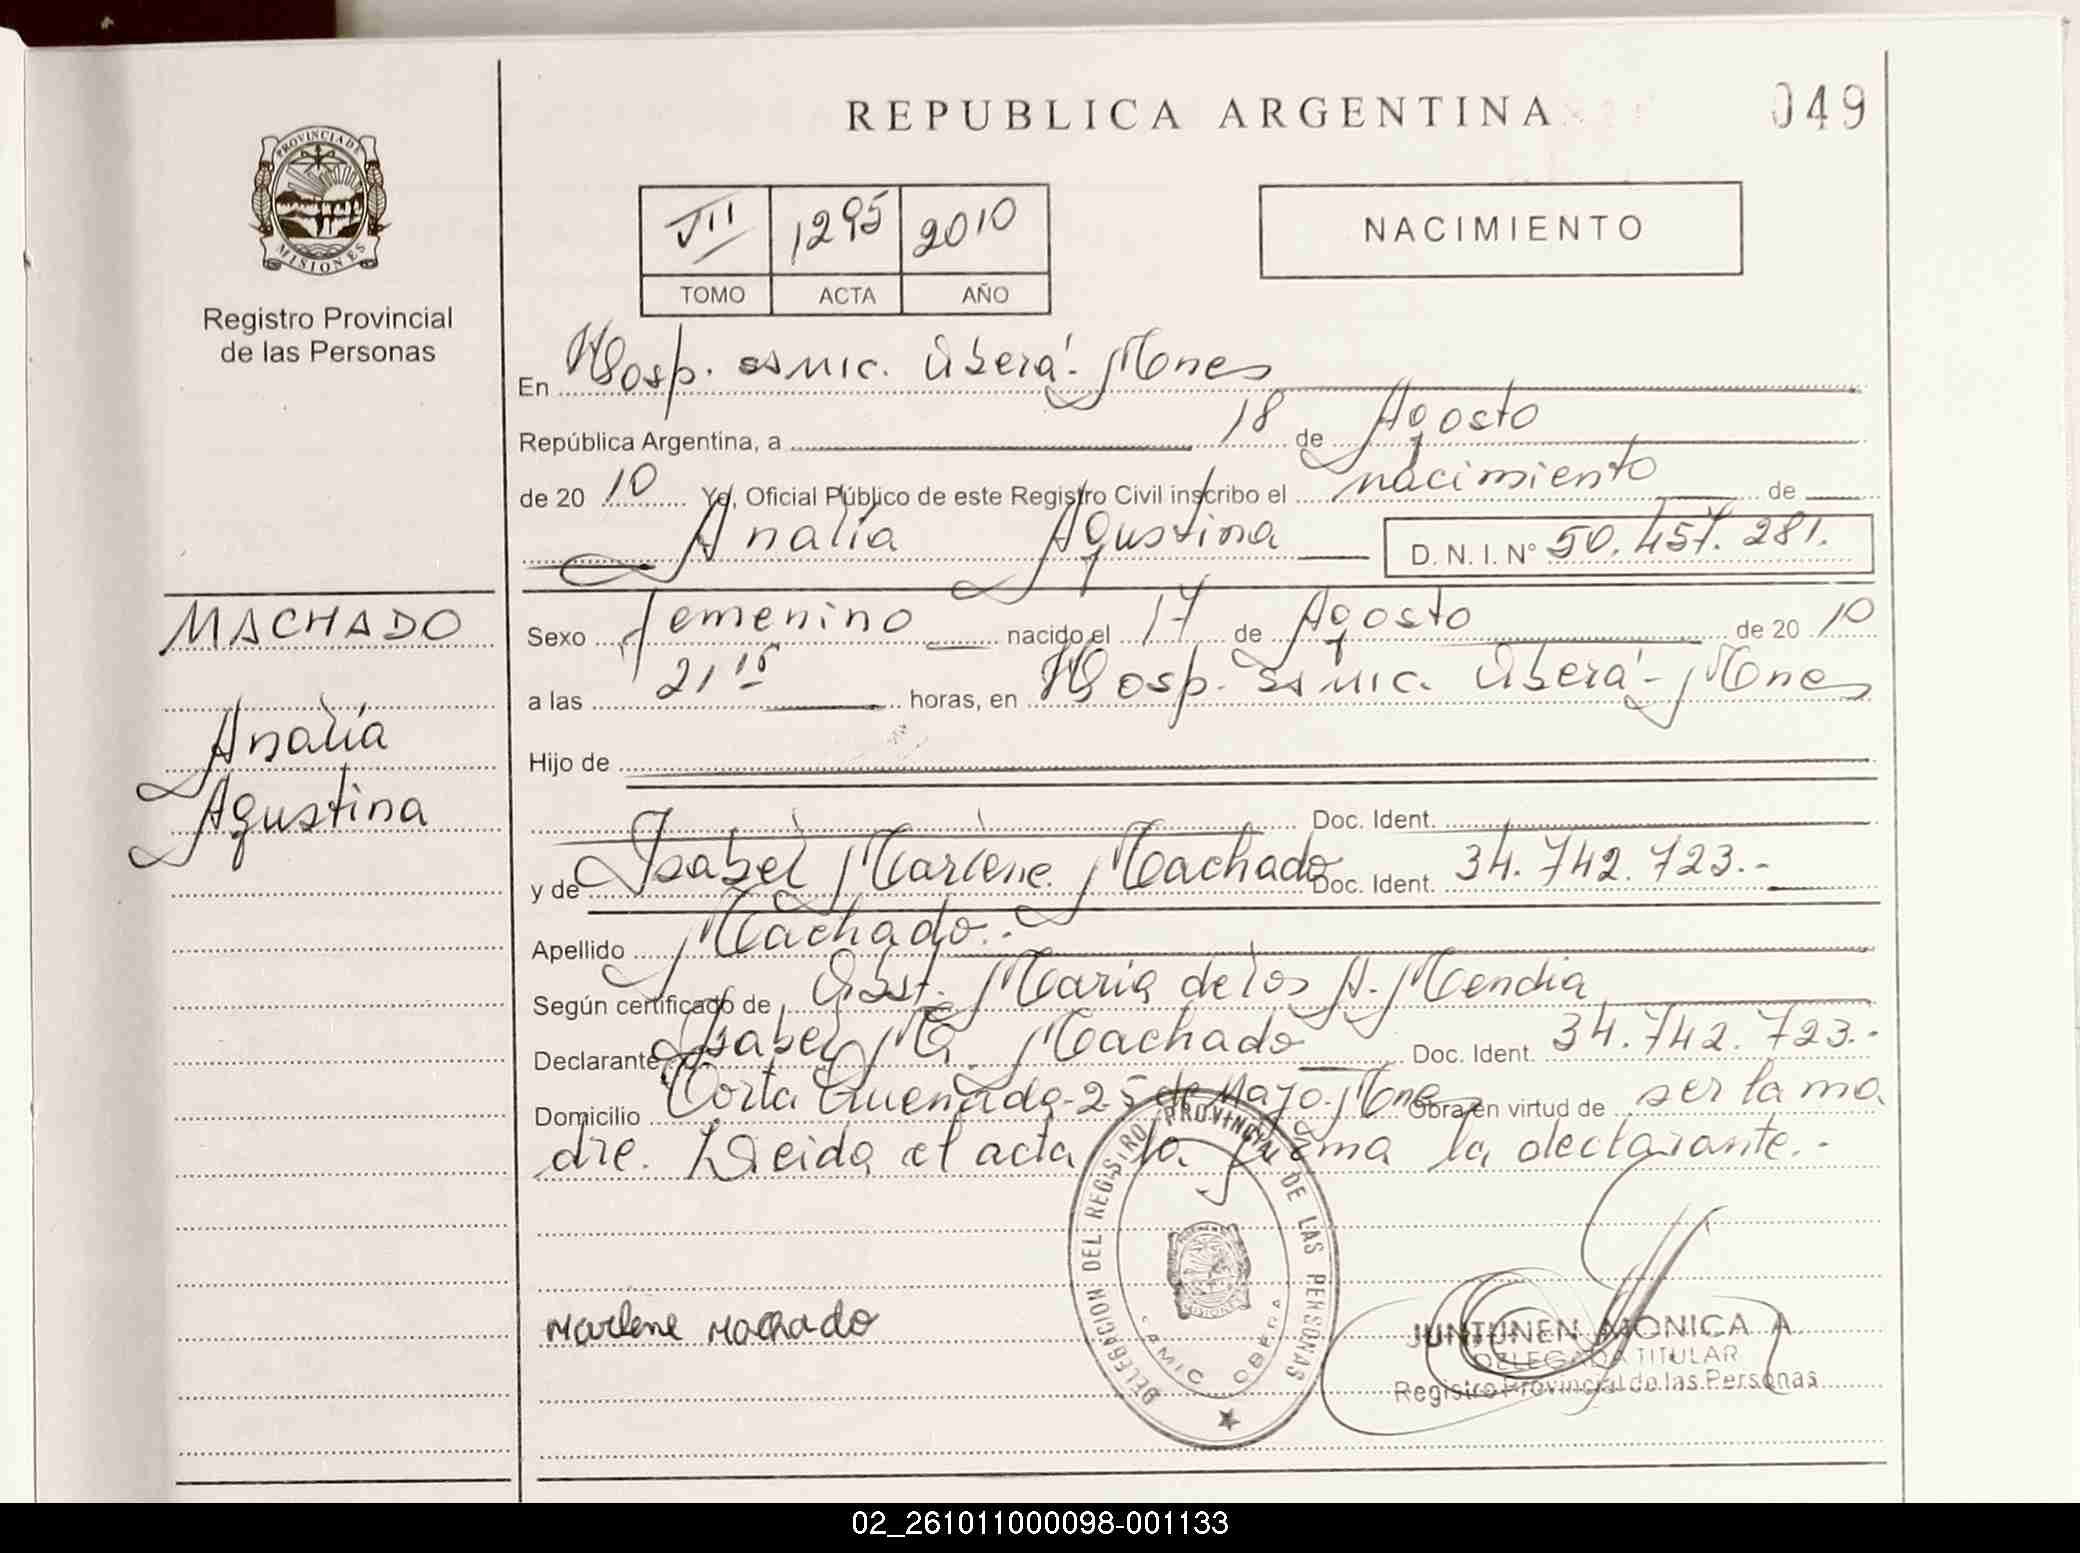 REPUBLICA ARGENTINA
049
PROVINCIA DE
MISIONES
Registro Provincial
de las Personas
VII 1295 2010
TOMO ACTA AÑO
NACIMIENTO
En Hosp. SAMIC. Oberá - Mnes
República Argentina, a 18 de Agosto
de 20 10 Yo, Oficial Público de este Registro Civil inscribo el nacimiento de
Analía Agustina D. N. I. N° 50.457.281.
MACHADO
Analía
Agustina
Sexo femenino nacido el 17 de Agosto de 20 10
a las 21 15 horas, en Hosp. SAMIC. Oberá - Mnes
Hijo de
Doc. Ident.
y de Isabel Marlene Machado Doc. Ident. 34.742.723.-
Apellido Machado.-
Según certificado de Obst. María de los A. Mendia
Declarante Isabel M. Machado Doc. Ident. 34.742.723.-
Domicilio 25 de Mayo - Mnes Obra en virtud de ser la ma
dre. Leida el acta la firma la declarante.-
DELEGACION DEL REGISTRO PROVINCIAL DE LAS PERSONAS
MISIONES
SAMIC OBERA
Marlene Machado
JUNTUNEN MONICA A
DELEGADA TITULAR
Registro Provincial de las Personas
02_261011000098-001133